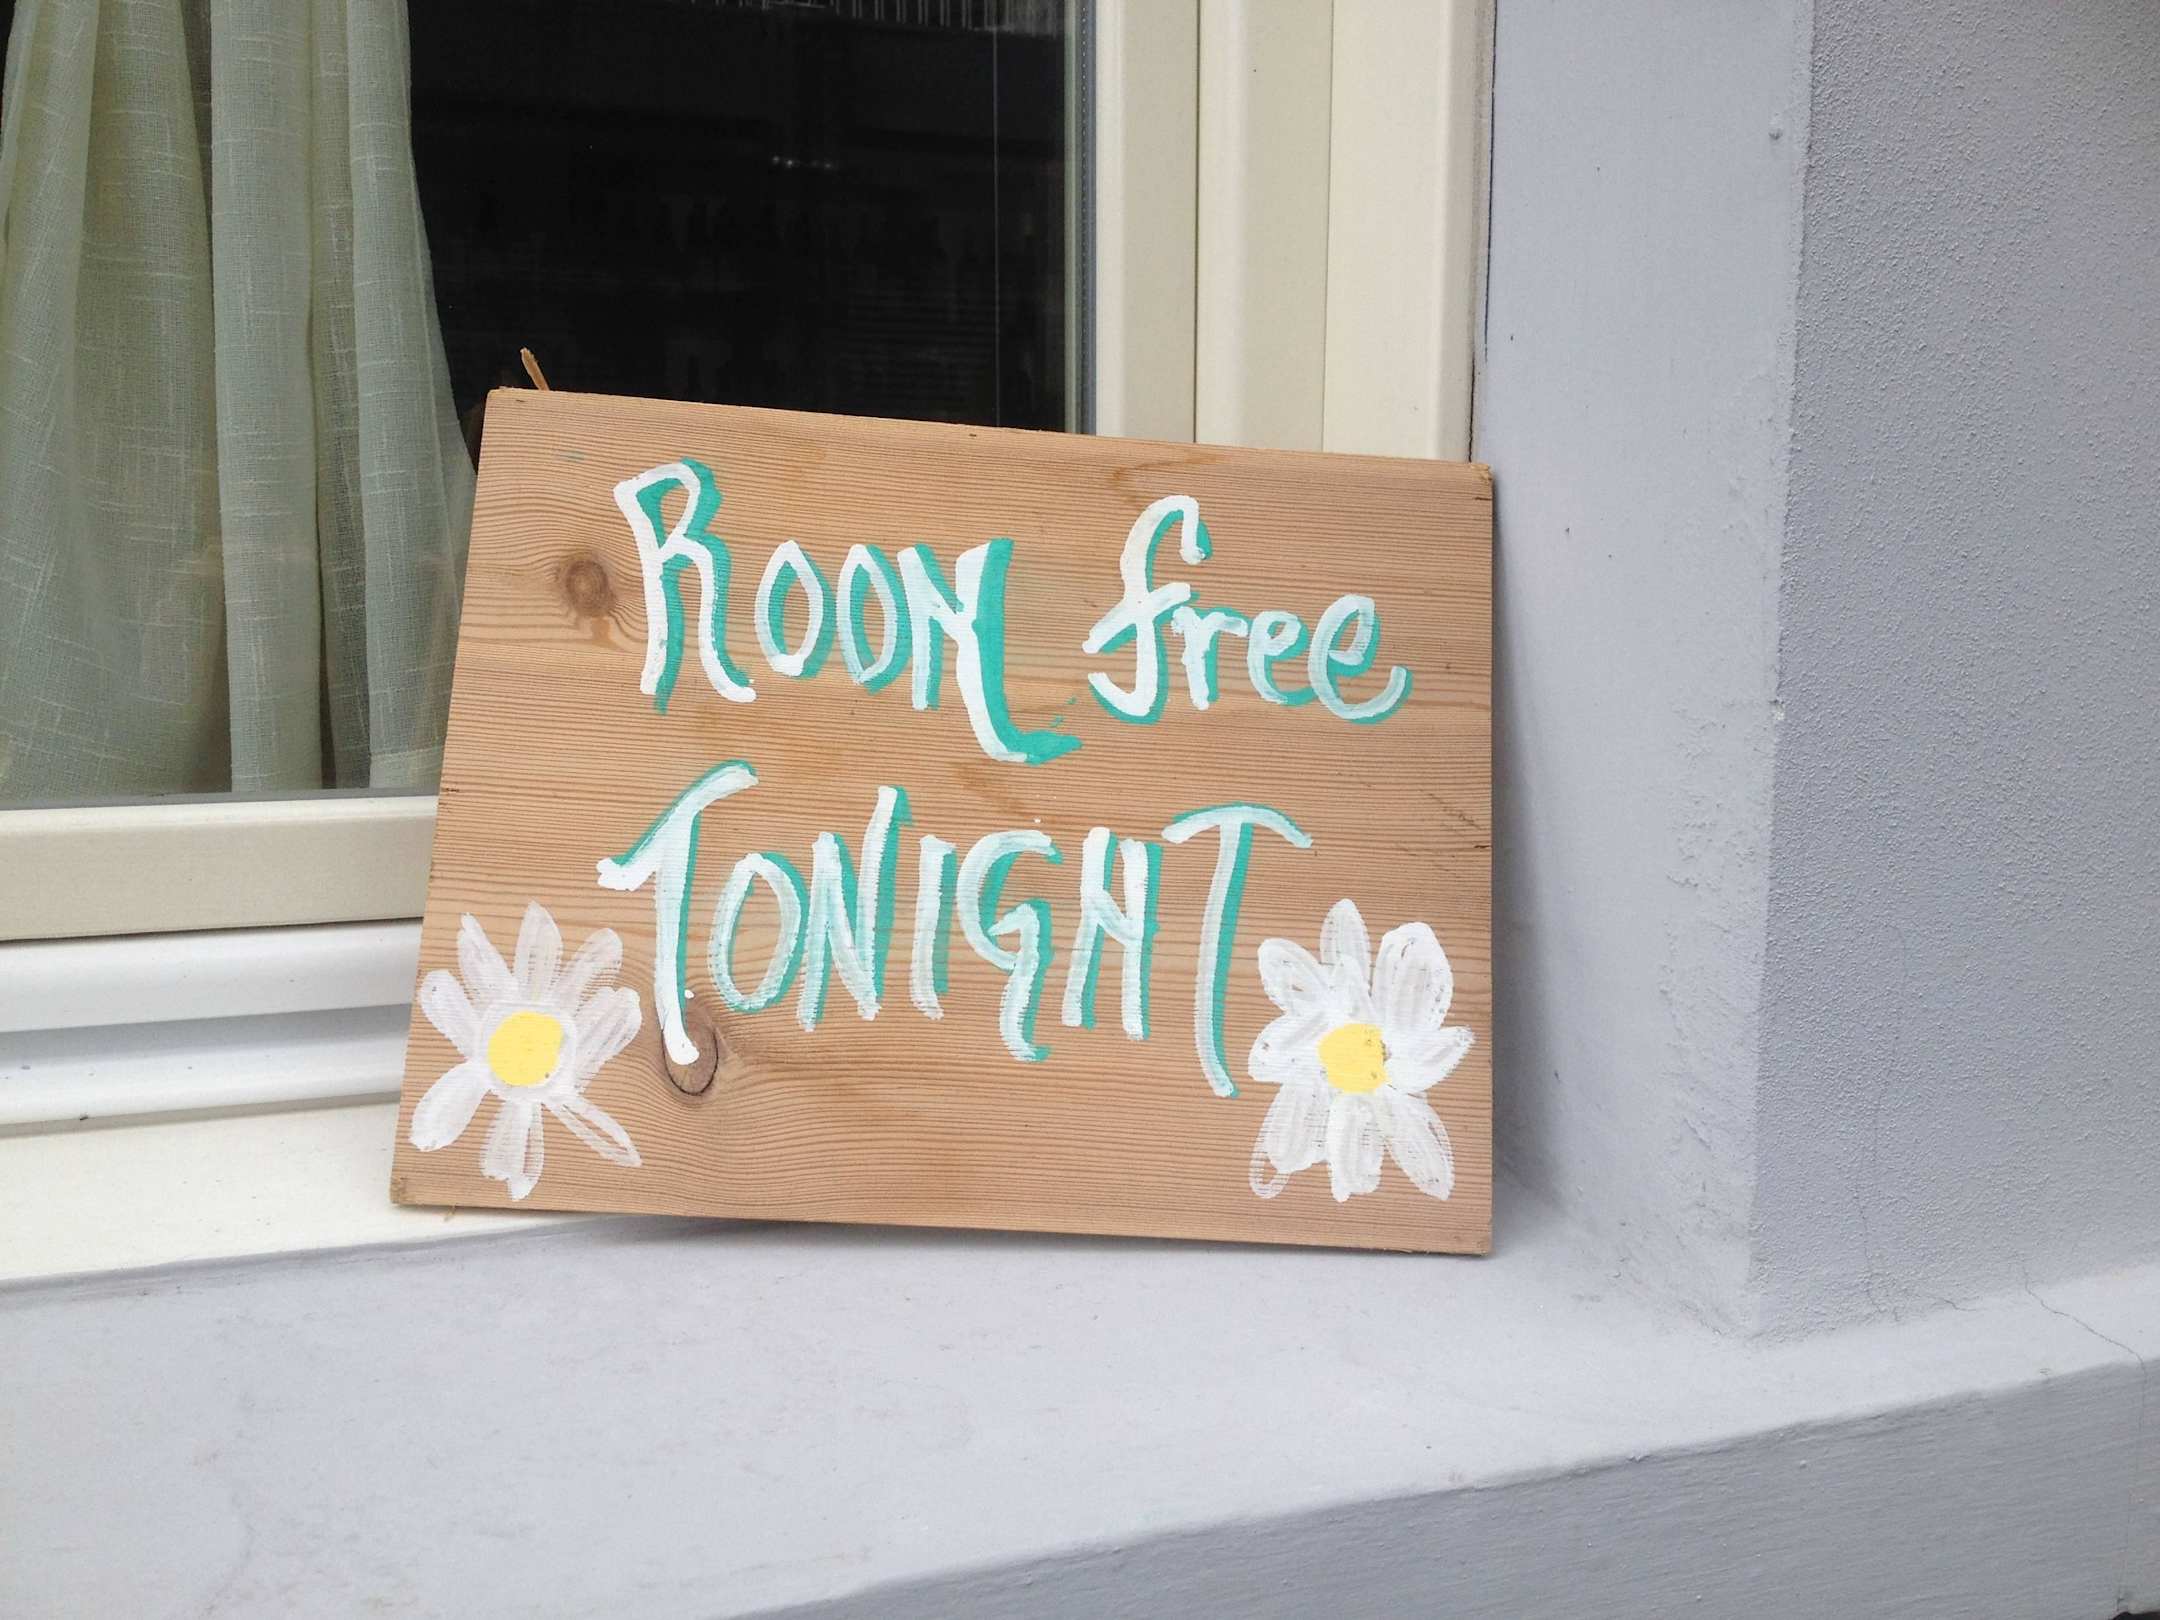 ROOM free
TONIGHT